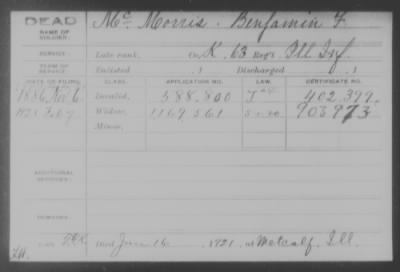 DEAD Mc Morris. Benjamin F.
NAME OF SOLDIER:
SERVICE: Late rank, Co. K. 63 Reg't Ill Inf.
TERM OF SERVICE: Enlisted , 1 Discharged , 1
DATE OF FILING. CLASS. APPLICATION NO. LAW. CERTIFICATE NO.
1886 Nov 6 Invalid, 588.800 402.399
1921 Widow, 1169 561 903973
Minor,
ADDITIONAL SERVICES:
REMARKS:
Died June 16 1921, at Metcalf, Ill.